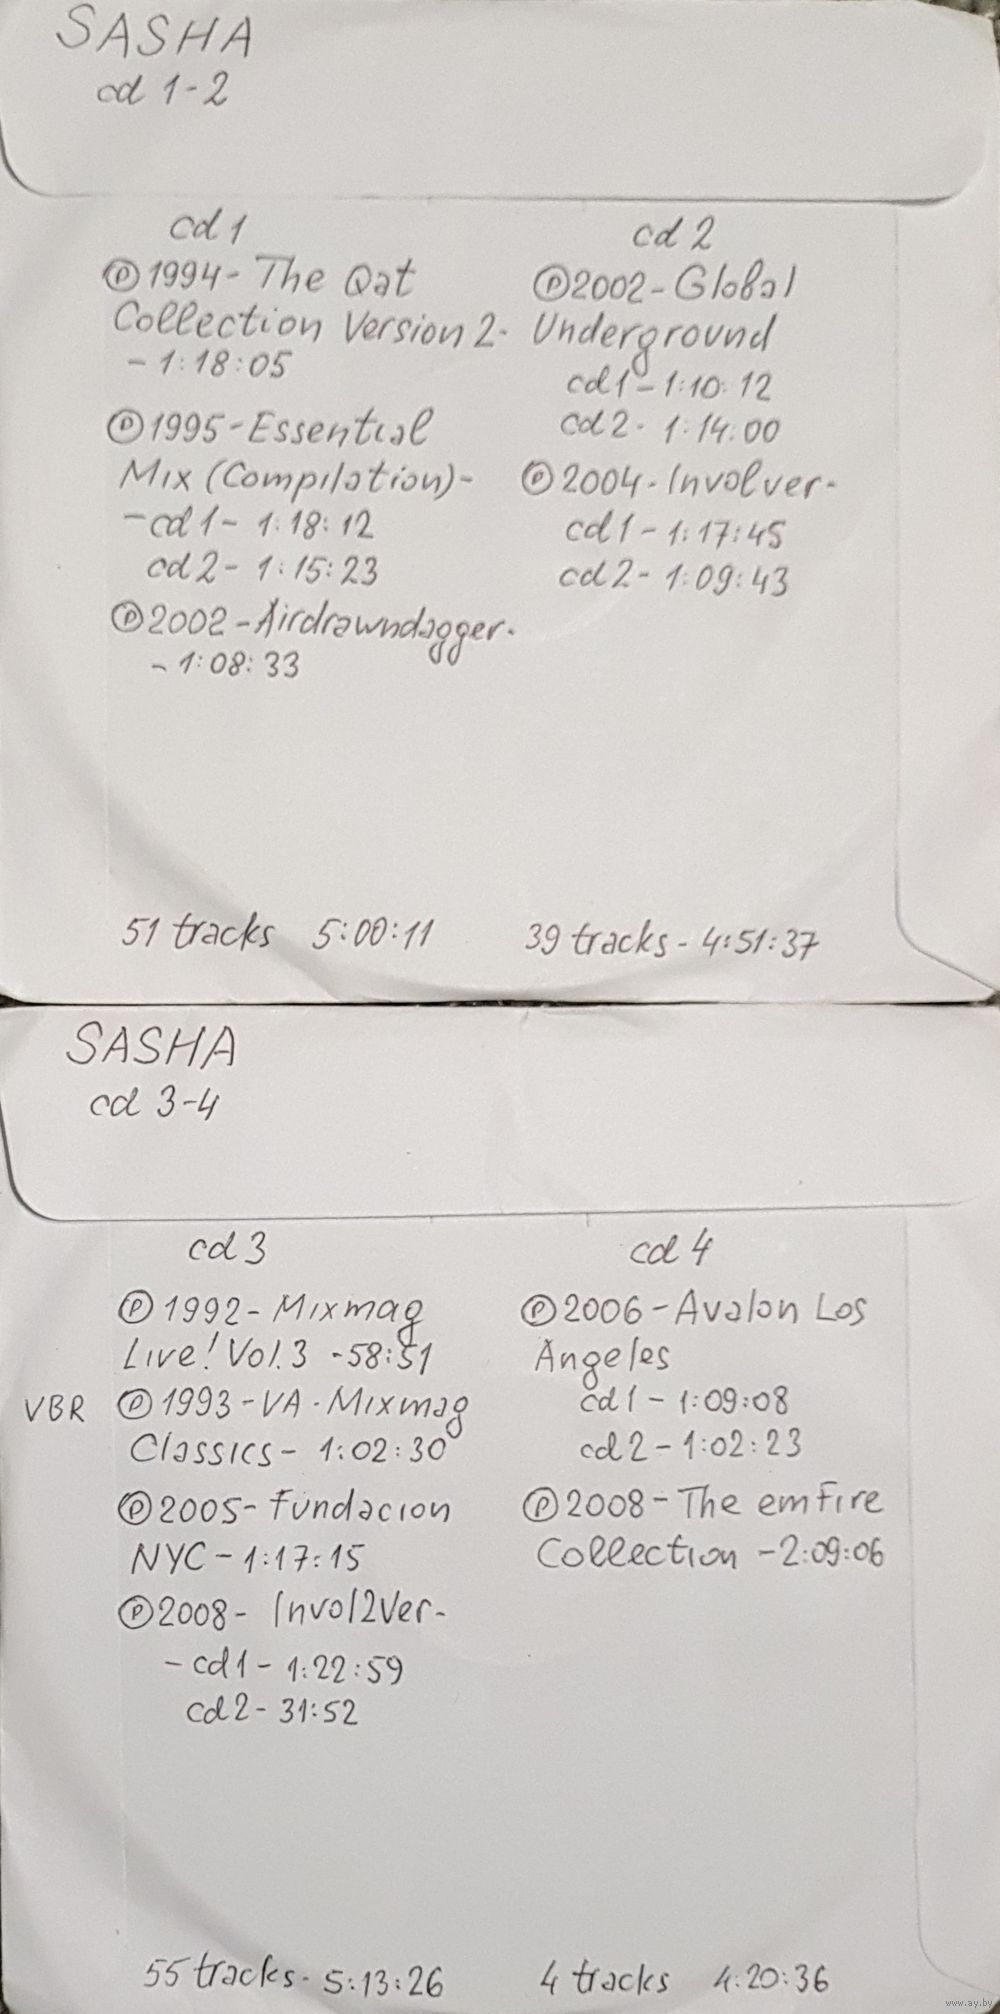 SASHA
cd 1-2
cd 1
Ⓟ 1994 - The Qat
Collection Version 2 -
- 1:18:05
Ⓟ 1995 - Essential
Mix (Compilation) -
- cd 1 - 1:18:12
cd 2 - 1:15:23
Ⓟ 2002 - Airdrawndagger -
- 1:08:33
51 tracks 5:00:11
cd 2
Ⓟ 2002 - Global
Underground
cd 1 - 1:10:12
cd 2 - 1:14:00
Ⓟ 2004 - Involver -
cd 1 - 1:17:45
cd 2 - 1:09:43
39 tracks - 4:51:37
SASHA
cd 3-4
cd 3
Ⓟ 1992 - Mixmag
Live! Vol. 3 - 58:51
VBR Ⓟ 1993 - VA - Mixmag
Classics - 1:02:30
Ⓟ 2005 - Fundacion
NYC - 1:17:15
Ⓟ 2008 - Invol2Ver -
- cd 1 - 1:22:59
cd 2 - 31:52
55 tracks - 5:13:26
cd 4
Ⓟ 2006 - Avalon Los
Angeles
cd 1 - 1:09:08
cd 2 - 1:02:23
Ⓟ 2008 - The emFire
Collection - 2:09:06
4 tracks 4:20:36
www.ay.by